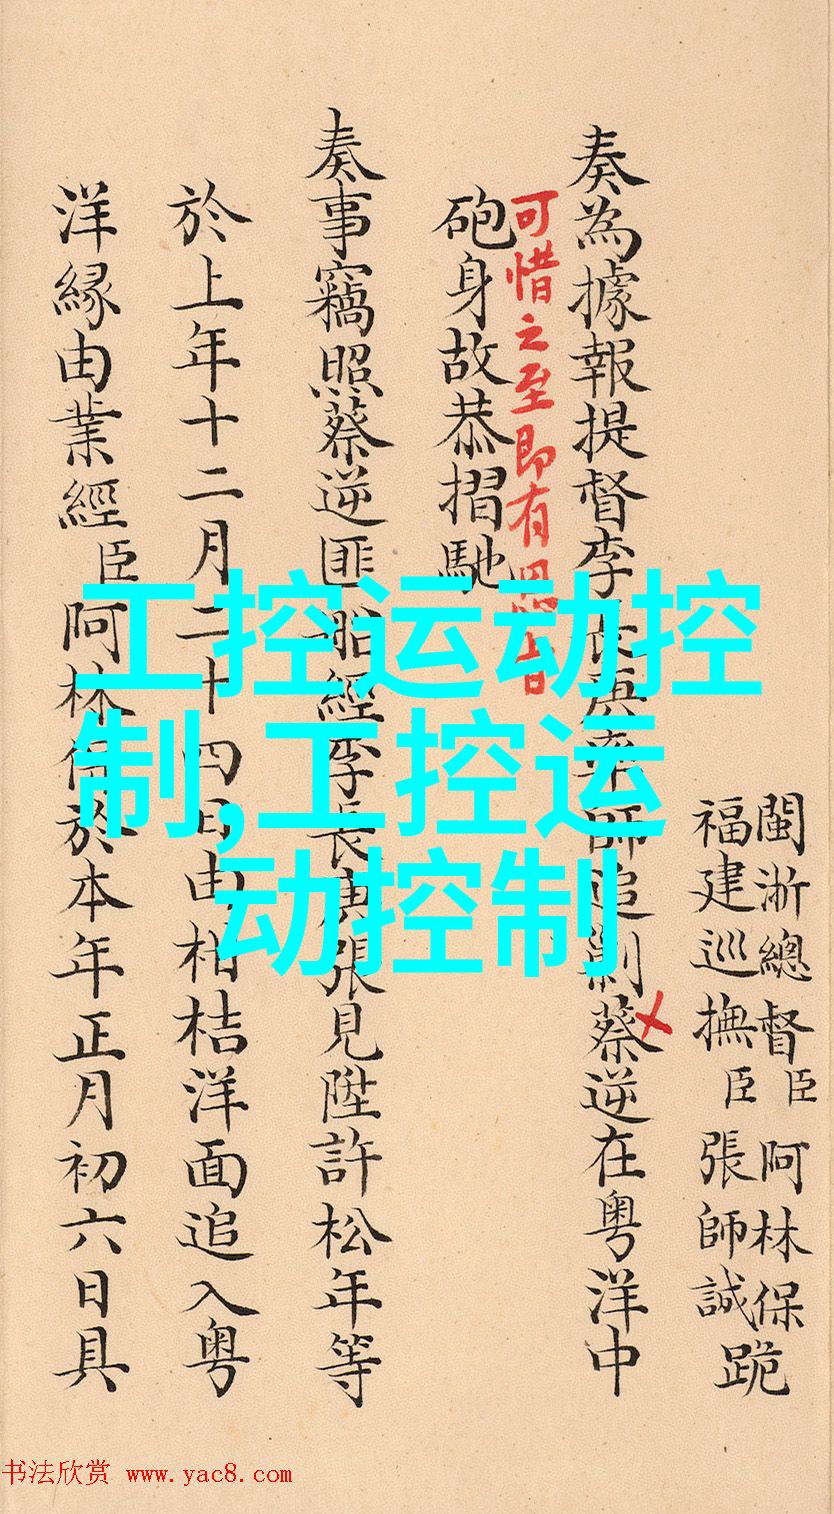 閩浙總督臣阿林保
福建巡撫臣張師誠
跪
奏為據報提督李長庚率師追剿蔡逆在粤洋中
可惜之至即有恩旨
砲身故恭摺馳
奏事竊照蔡逆匪船經李長庚張見陞許松年等
於上年十二月二十四日由柑桔洋面追入粤
洋緣由業經臣阿林保於本年正月初六日具
工控运动控
制,工控运
动控制
书法欣赏 www.yac8.com